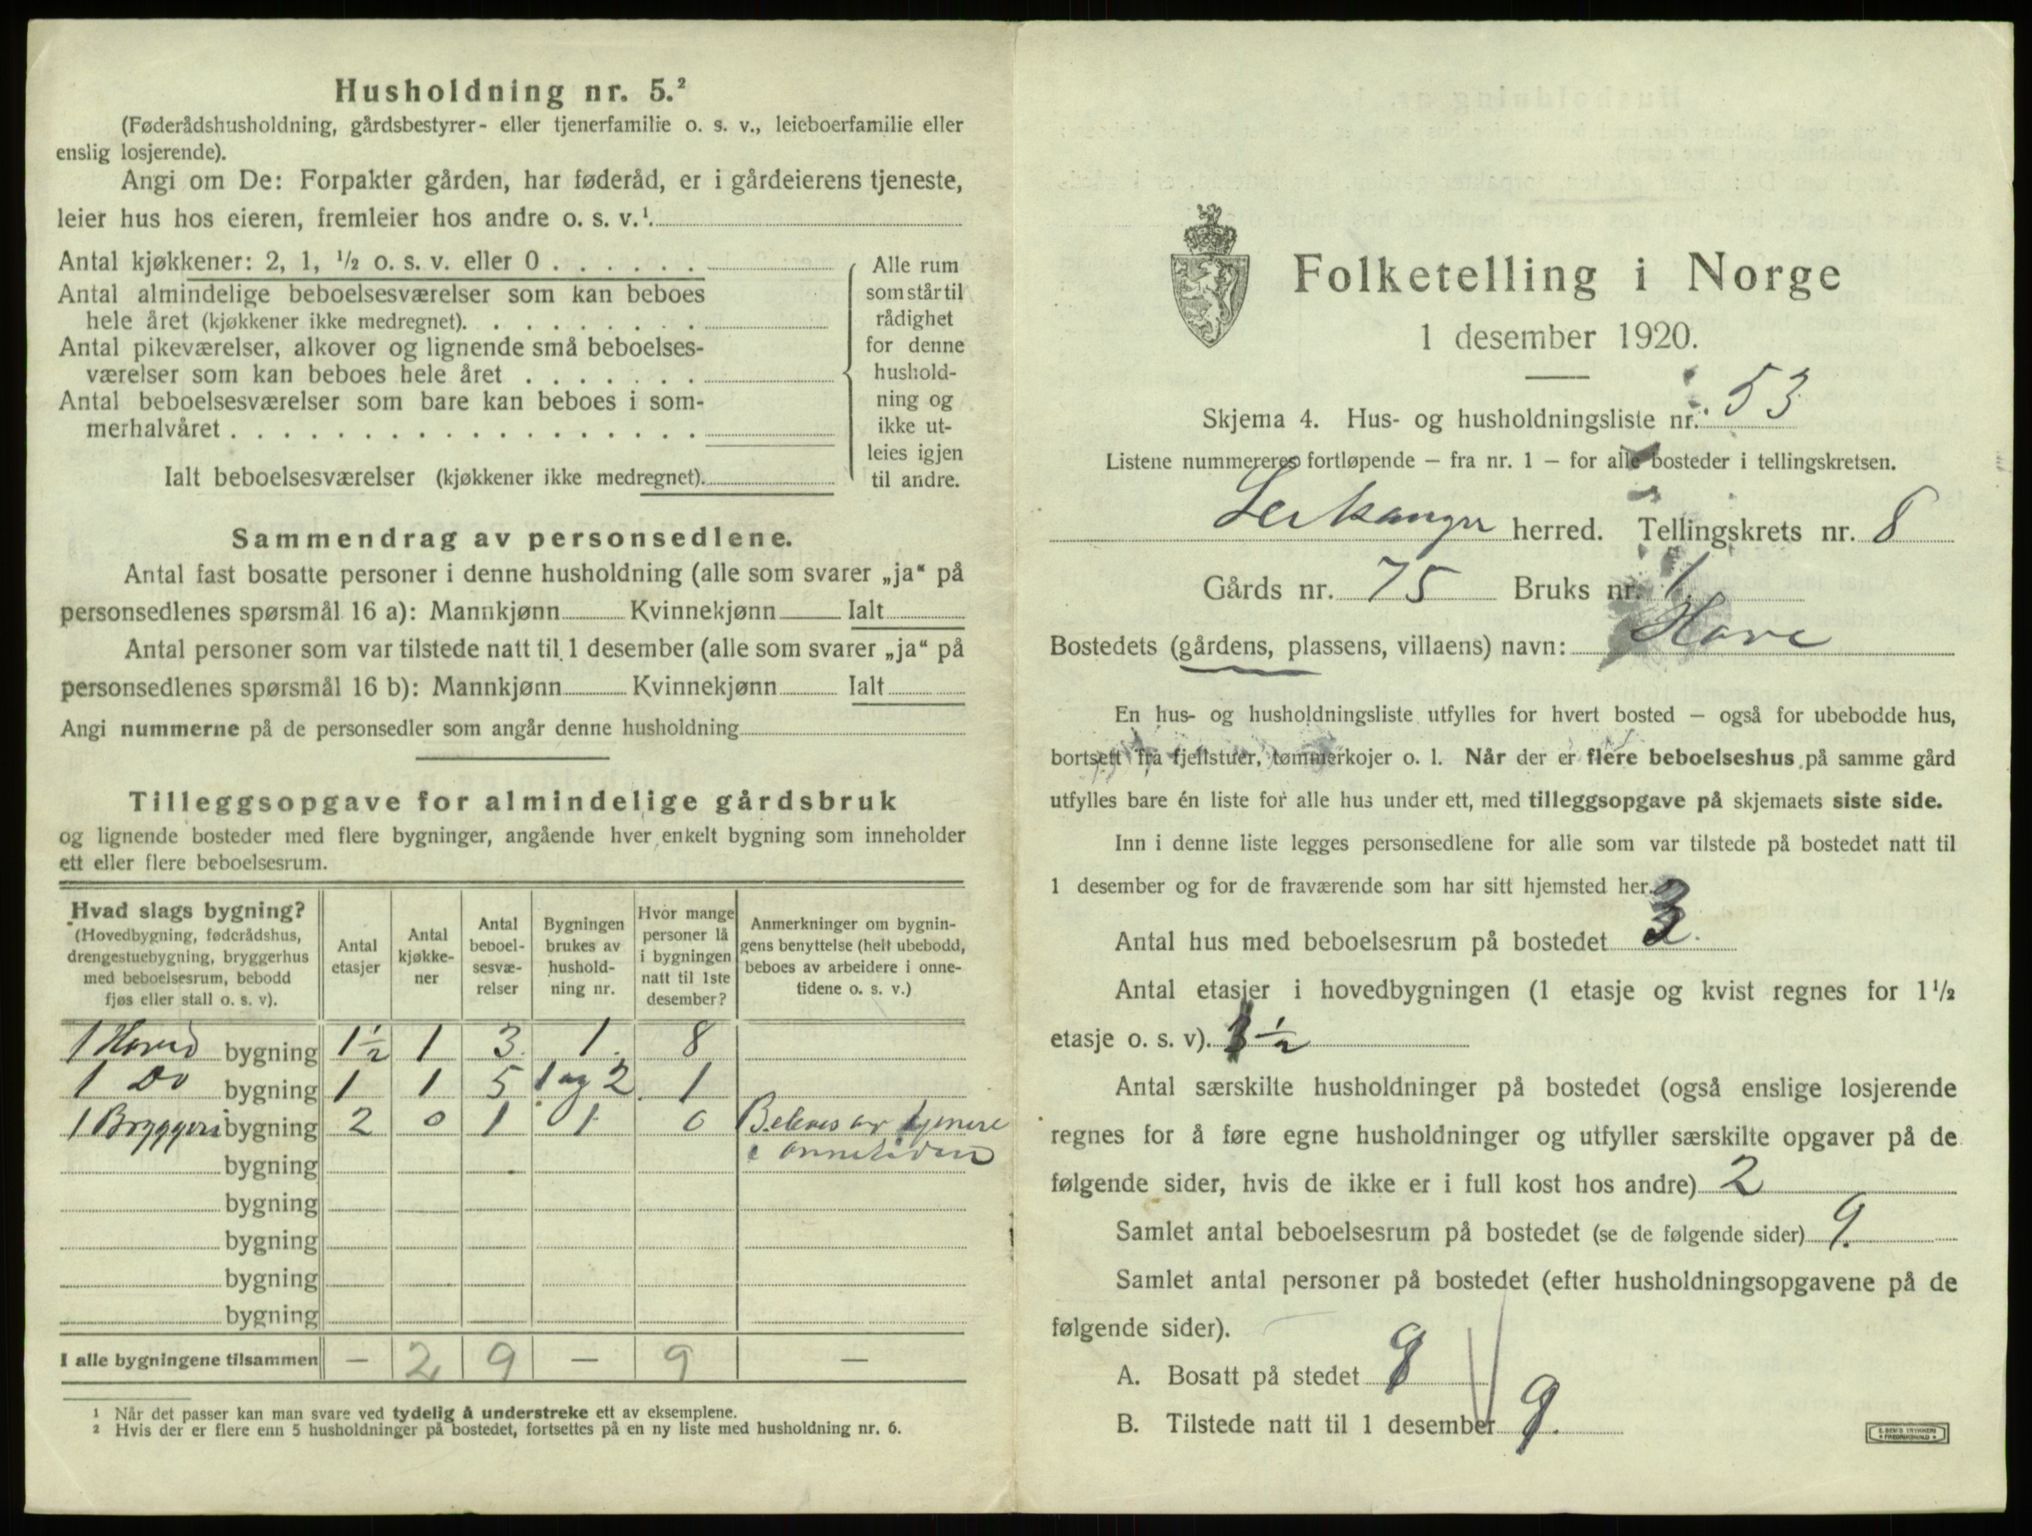 Husholdning nr. 5.²
(Føderådshusholdning, gårdsbestyrer- eller tjenerfamilie o. s. v., leieboerfamilie eller
enslig losjerende).
Angi om De: Forpakter gården, har føderåd, er i gårdeierens tjeneste,
leier hus hos eieren, fremleier hos andre o. s. v.¹.
Antal kjøkkener: 2, 1, ½ o. s. v. eller 0
Antal almindelige beboelsesværelser som kan beboes
hele året (kjøkkener ikke medregnet).
Antal pikeværelser, alkover og lignende små beboelses-
værelser som kan beboes hele året
Antal beboelsesværelser som bare kan beboes i som-
merhalvåret
Ialt beboelsesværelser (kjøkkener ikke medregnet).
Alle rum
som står til
rådighet
for denne
hushold-
ning og
ikke ut-
leies igjen
til andre.
Sammendrag av personsedlene.
Antal fast bosatte personer i denne husholdning (alle som svarer „ja“ på
personsedlenes spørsmål 16 a): Mannkjønn Kvinnekjønn Ialt
Antal personer som var tilstede natt til 1 desember (alle som svarer „ja“ på
personsedlenes spørsmål 16 b): Mannkjønn Kvinnekjønn Ialt
Angi nummerne på de personsedler som angår denne husholdning
Tilleggsopgave for almindelige gårdsbruk
og lignende bosteder med flere bygninger, angående hver enkelt bygning som inneholder
ett eller flere beboelsesrum.
Hvad slags bygning?
(Hovedbygning, føderådshus,
drengestuebygning, bryggerhus
med beboelsesrum, bebodd
fjøs eller stall o. s. v).
Antal
etasjer
Antal
kjøkke-
ner
Antal
beboel-
sesvæ-
relser
Bygningen
brukes av
hushold-
ning nr.
Hvor mange
personer lå
i bygningen
natt til 1ste
desember?
Anmerkninger om bygnin-
gens benyttelse (helt ubebodd,
beboes av arbeidere i onne-
tidene o. s. v.)
1 Hoved bygning 1½ 1 3 1. 8
1 Do bygning 1 1 5 1 og 2 1
1 Bryggeri bygning 2 0 1 1 0 Beboes av tjenere
i onnetiden
bygning
bygning
bygning
bygning
bygning
I alle bygningene tilsammen – 2 9 – 9 –
¹ Når det passer kan man svare ved tydelig å understreke ett av eksemplene.
² Hvis der er flere enn 5 husholdninger på bostedet, fortsettes på en ny liste med husholdning nr. 6.
Folketelling i Norge
1 desember 1920.
Skjema 4. Hus- og husholdningsliste nr. 53
Listene nummereres fortløpende – fra nr. 1 – for alle bosteder i tellingskretsen.
Leikanger herred. Tellingskrets nr. 8
Gårds nr. 75 Bruks nr. 1
Bostedets (gårdens, plassens, villaens) navn: Hove
En hus- og husholdningsliste utfylles for hvert bosted – også for ubebodde hus,
bortsett fra fjellstuer, tømmerkojer o. l. Når der er flere beboelseshus på samme gård
utfylles bare én liste for alle hus under ett, med tilleggsopgave på skjemaets siste side.
Inn i denne liste legges personsedlene for alle som var tilstede på bostedet natt til
1 desember og for de fraværende som har sitt hjemsted her.
Antal hus med beboelsesrum på bostedet 3.
Antal etasjer i hovedbygningen (1 etasje og kvist regnes for 1½
etasje o. s. v). 1½
Antal særskilte husholdninger på bostedet (også enslige losjerende
regnes for å føre egne husholdninger og utfyller særskilte opgaver på de
følgende sider, hvis de ikke er i full kost hos andre) 2
Samlet antal beboelsesrum på bostedet (se de følgende sider) 9.
Samlet antal personer på bostedet (efter husholdningsopgavene på de
følgende sider).
A. Bosatt på stedet 9
B. Tilstede natt til 1 desember 9.